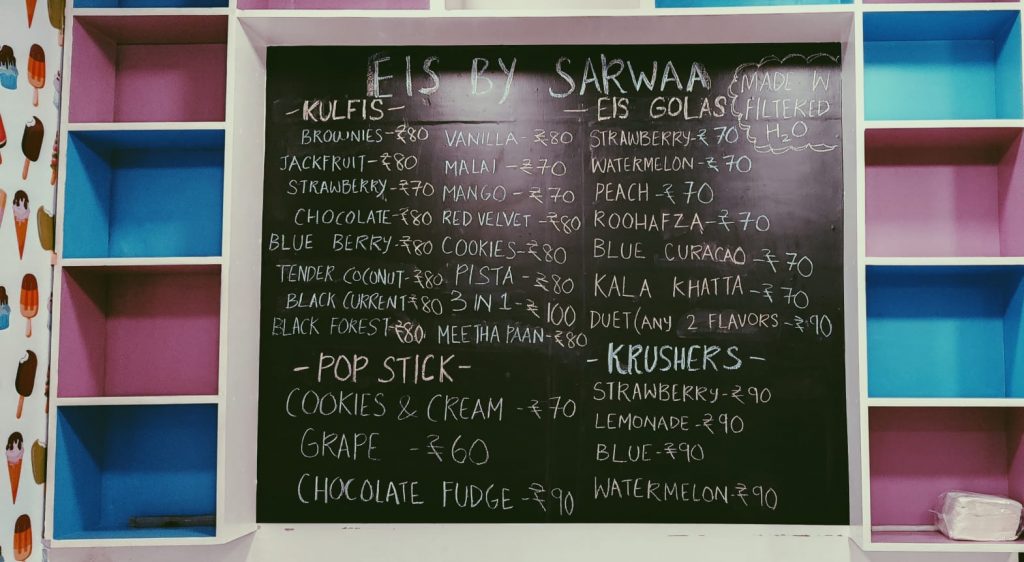 EIS BY SARWAA
MADE W
FILTERED
H₂O
- KULFIS -
BROWNIES - ₹80
JACKFRUIT - ₹80
STRAWBERRY - ₹70
CHOCOLATE - ₹80
BLUE BERRY - ₹80
TENDER COCONUT - ₹80
BLACK CURRENT ₹80
BLACK FOREST - ₹80
VANILLA - ₹80
MALAI - ₹70
MANGO - ₹70
RED VELVET - ₹80
COOKIES - ₹80
PISTA - ₹80
3 IN 1 - ₹100
MEETHA PAAN - ₹80
- POP STICK -
COOKIES & CREAM - ₹70
GRAPE - ₹60
CHOCOLATE FUDGE - ₹90
- EIS GOLAS
STRAWBERRY - ₹70
WATERMELON - ₹70
PEACH - ₹70
ROOHAFZA - ₹70
BLUE CURACAO - ₹70
KALA KHATTA - ₹70
DUET (ANY 2 FLAVORS - ₹90
- KRUSHERS -
STRAWBERRY - ₹90
LEMONADE - ₹90
BLUE - ₹90
WATERMELON - ₹90